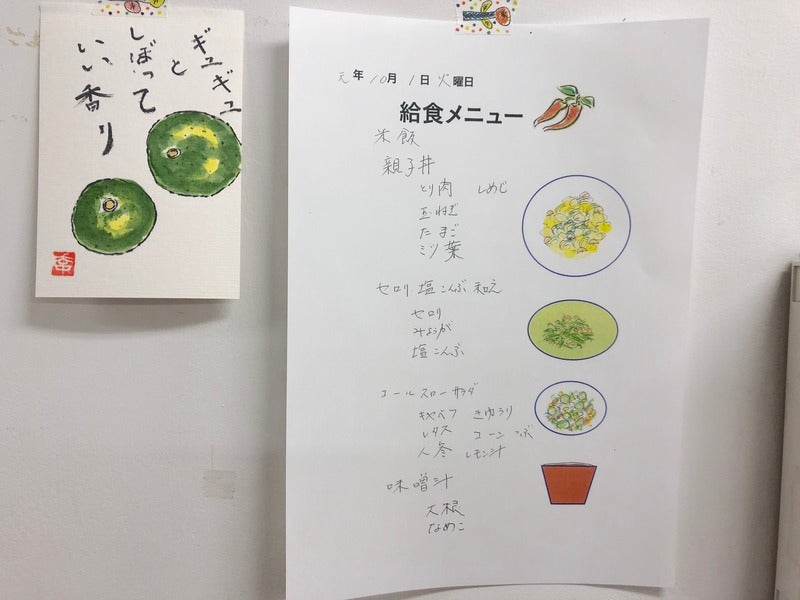 ギュギュ
と
しぼって
いい香り
元年10月1日火曜日
給食メニュー
米飯
親子丼
とり肉 しめじ
玉ねぎ
たまご
ミツ葉
セロリ塩こんぶ和え
セロリ
みょうが
塩こんぶ
コールスローサラダ
キャベツ きゅうり
レタス コーンつぶ
人参 レモン汁
味噌汁
大根
なめこ